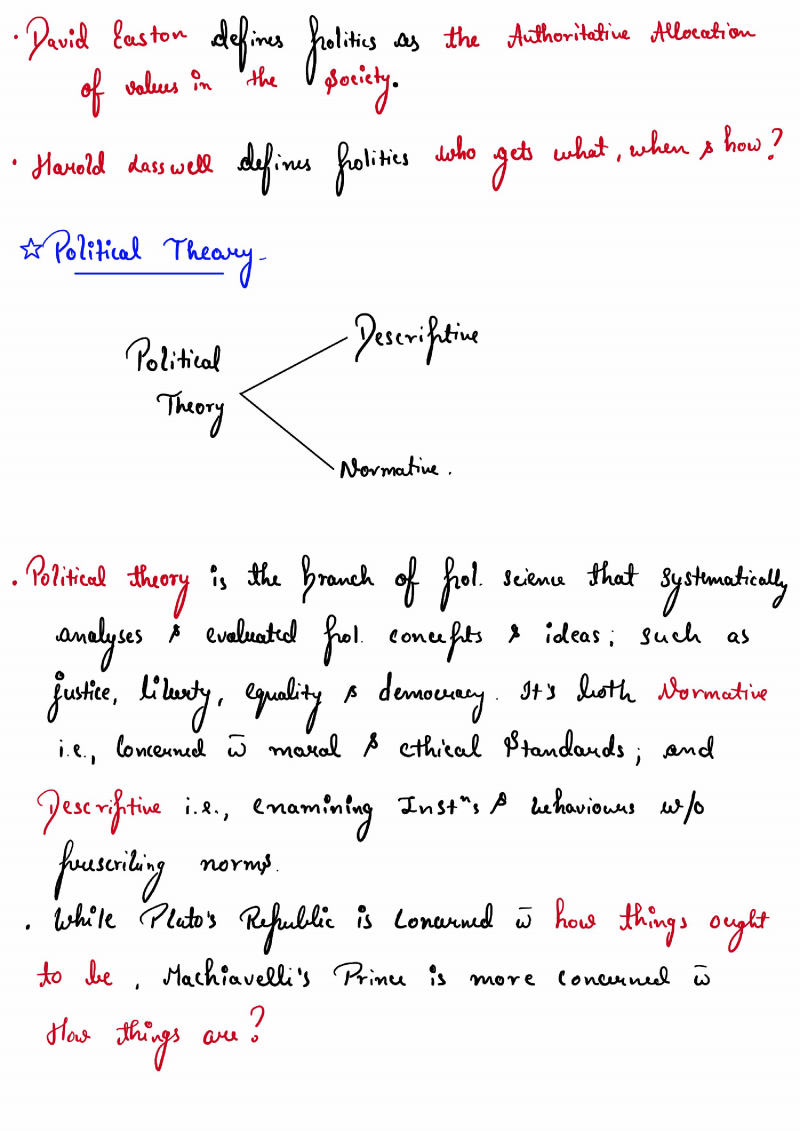 · David Easton defines politics as the Authoritative Allocation
of values in the society.
· Harold Lasswell defines politics who gets what, when & how?
☆ Political Theory -
Descriptive
Political
Theory
Normative.
· Political theory is the branch of pol. science that systematically
analyses & evaluated pol. concepts & ideas; such as
justice, liberty, equality & democracy. It's both Normative
i.e., concerned w̄ moral & ethical standards; and
Descriptive i.e., examining Instⁿs & behaviours w/o
prescribing norms.
· While Plato's Republic is concerned w̄ how things ought
to be, Machiavelli's Prince is more concerned w̄
How things are?